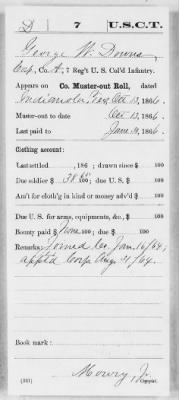 D 7 U.S.C.T.
George W. Downs
Corp, Co. A, 7 Reg't U. S. Col'd Infantry.
Appears on Co. Muster-out Roll, dated
Indianola, Tex. Oct 13, 1866.
Muster-out to date Oct 13, 1866.
Last paid to June 30, 1866.
Clothing account:
Last settled , 186 ; drawn since $ 100
Due soldier $ 100; due U. S. $ 100
Am't for cloth'g in kind or money adv'd $ 100
Due U. S. for arms, equipments, &c., $ 100
Bounty paid $ None 100; due $ 100
Remarks: Joined Co. Jan. 16/64;
apptd Corp Aug /64.
Book mark:
Mowry, Jr.
(361) Copyist.